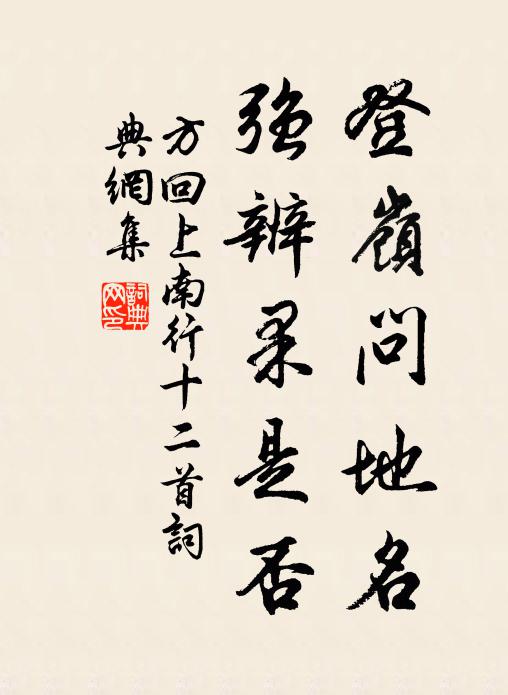 登嶺問地名
強辨果是否
方回上南行十二首詞
典網集
詞典網印